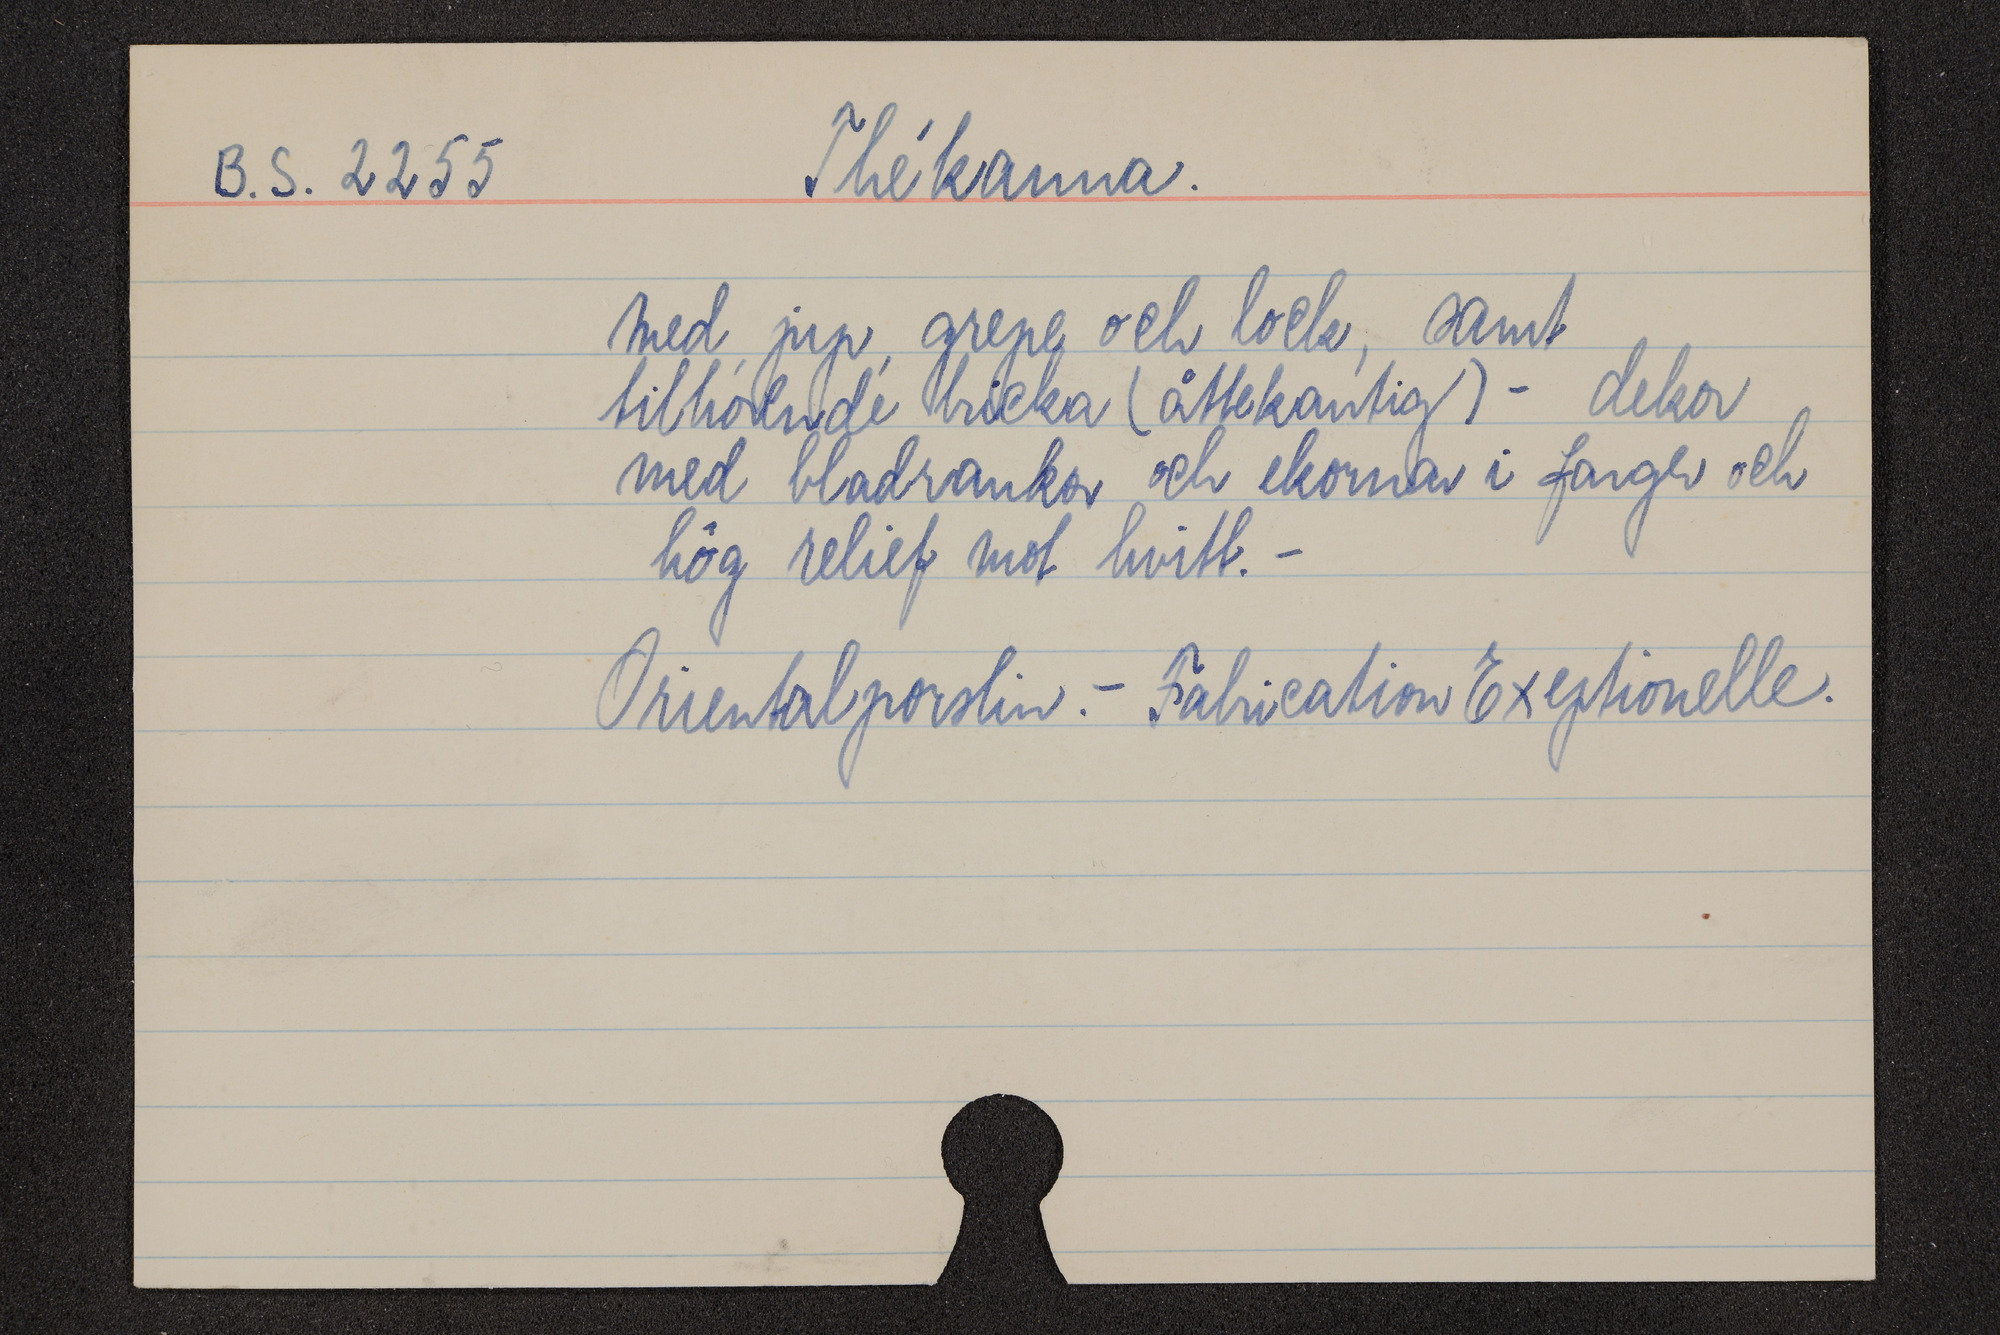 B.S. 2255 Thékanna.
med pip, grepe och lock, samt
tilhörende bricka (åttekantig) - dekor
med bladrankor och ekornar i farger och
hög relief mot hvitt. -
Orientalporslin. - Fabrication Exeptionelle.